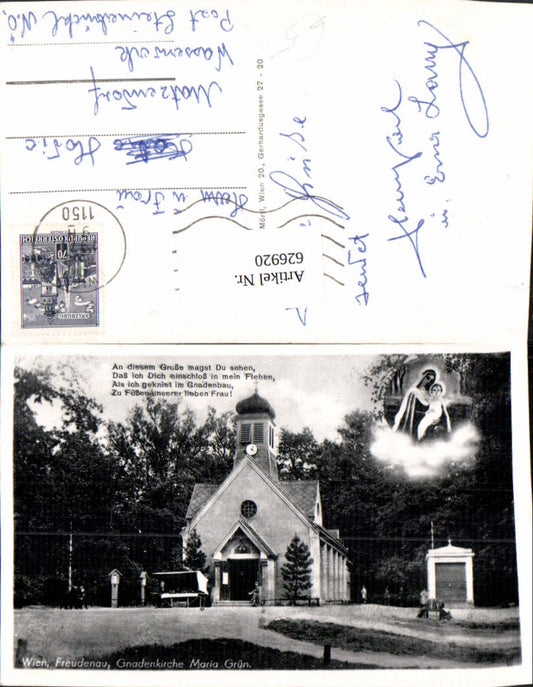 Post Steinabrückl N.Ö.
Wasserwerk
Matzendorf
Hofic
Herrn u Frau
Mörtl, Wien 20., Gerhardusgasse 27 - 20
Grüße
sendet
Artikel Nr.
626920
1150
REPUBLIK ÖSTERREICH
70
SALZBURG
An diesem Gruße magst Du sehen,
Daß ich Dich einschloß in mein Flehen,
Als ich gekniet im Gnadenbau,
Zu Füßen unserer lieben Frau!
Wien, Freudenau, Gnadenkirche Maria Grün.